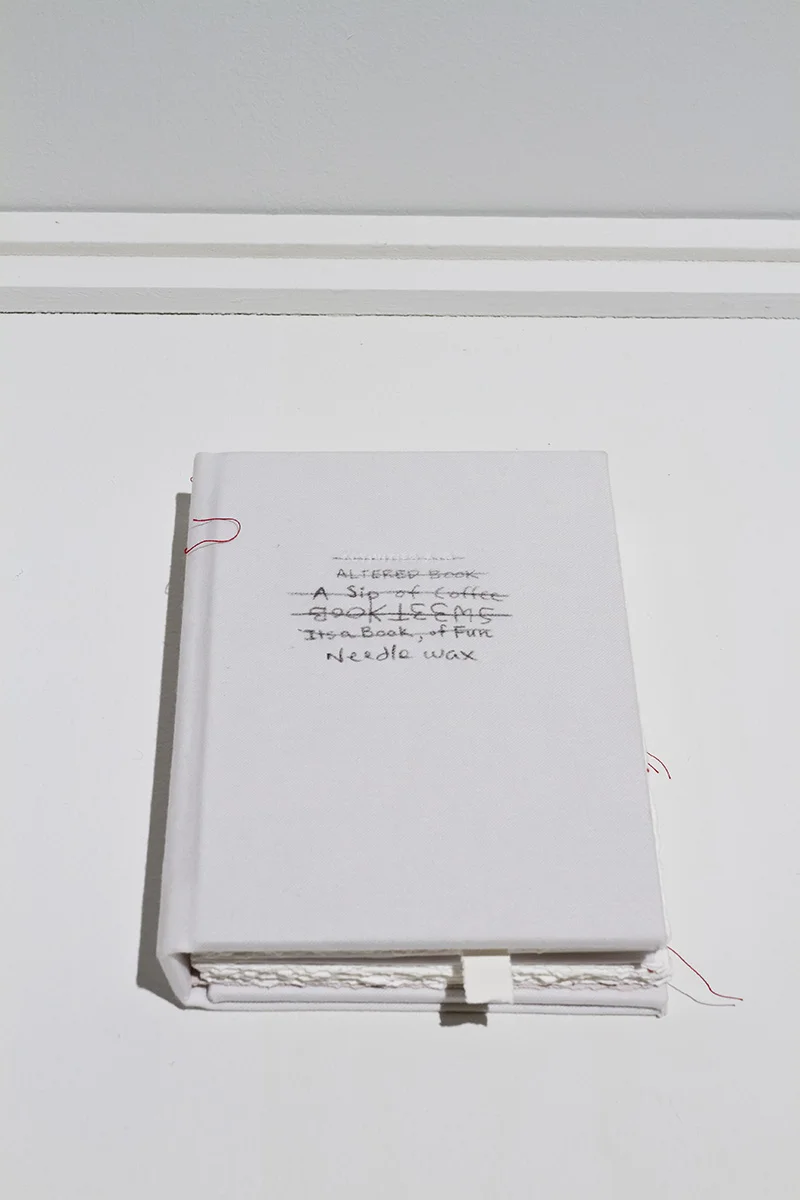 ALTERED BOOK
A Sip of Coffee
BOOK TEEMS
Its a Book, of Fun
Needle wax